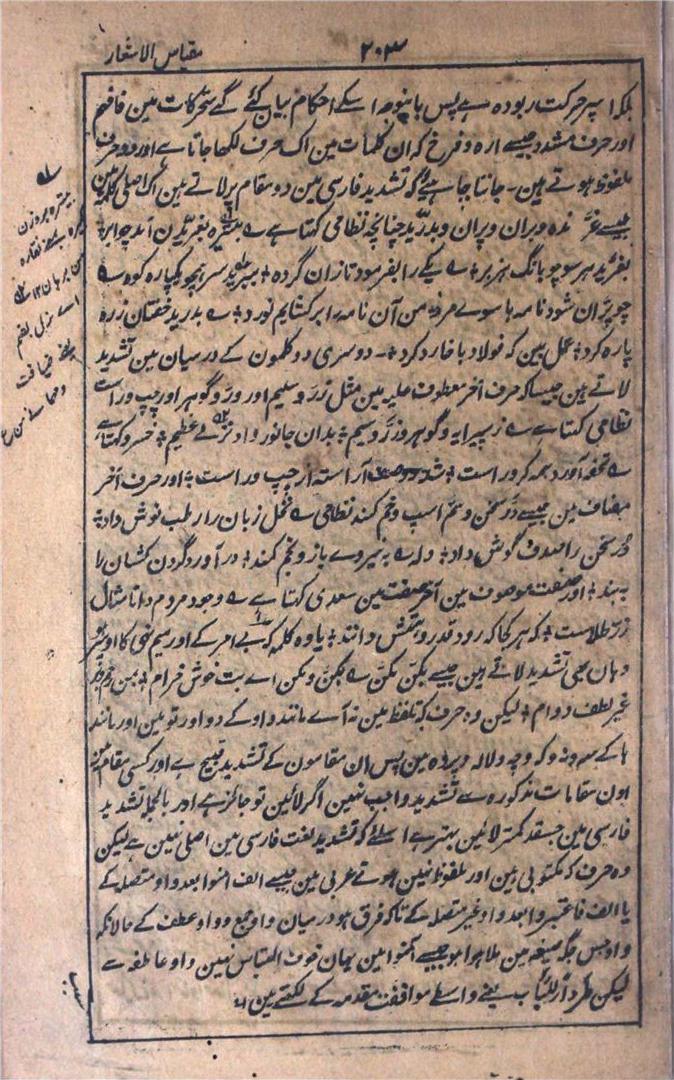 ۲۰۳
مقیاس الاشعار
بلکہ اسپر حرکت ربودہ ہے پس باینوجہ اسکے احکام بیان کئے گئے متحرکات مین فافہم
اور حرف مشدد جیسے ارہ و فرخ کہ ان کلمات مین اک حرف لکھا جاتا ہے اور دو حرف
ملفوظ ہوتے ہین۔ جاننا چاہیئے کہ تشدید فارسی مین دو مقام پر لاتے ہین اک اصلی کلمہ مین
جیسے غرّندہ و بران و پران و بدرّید چنانچہ نظامی کہتا ہے ؎ بغرّیدن آمد چو ابر
بغرّید ہر سو چو بانگ ہزبر ؎ یکے را بفرمود تا زان گردہ ببرید سر ہمچو یکپارہ کوہ ؎
چو پرّان شود نامہ ہا سوے مرد من آن نامہ را بر کشایم نورد ؎ بدرید خفتان زرہ
پارہ کرد عمل بین کہ فولاد با خارہ کرد ۔ دوسری دو کلمون کے درمیان مین تشدید
لاتے ہین جیسا کہ حرف آخر معطوف علیہ مین مثل زرّ و سیم اور درّ و گوہر اور چپ و راست
نظامی کہتا ہے ؎ ز پیرایہ و گوہر و زرّ و سیم بدان جانور داد نزلے عظیم خسرو کہتا ہے
؎ تحفہ آورد ہمہ کرد راست آراستہ از چپ و راست اور حرف آخر
مضاف مین جیسے درّ سخن و سمّ اسپ و خم کمند نظامی ؎ نخل زبان را رطب نوش داد
درّ سخن را صدف گوش داد ولہ ؎ بہ نیروے بازو و خم کمند در آورد گردن کشان را
بہ بند اور صفت موصوف مین آخر صفت مین سعدی کہتا ہے ؎ وجود مردم دانا مثال
زرّ طلاست کہ ہر کجا کہ رود قدر و قیمتش دانند یا وہ کلمہ کہ بے امر کے اور میم نہی کا او
وہان بھی تشدید لاتے ہین جیسے بکن مکن ؎ بکن و مکن اے بت خوش خرام بمن
غیر لطف دوام لیکن وہ حرف کہ تلفظ مین نہ آے مانند واو کے دو اور تو مین اور مانند
ہا کے سہ و نہ و کہ و چہ و لالہ و پردہ مین پس ان مقامون کے تشدید قبیح ہے اور کسی مقام مین
اون مقامات مذکورہ سے تشدید واجب نہین اگر لائین تو جائز ہے اور بالجملہ تشدید
فارسی مین جسقدر کمتر لائین بہتر ہے اسلئے کہ تشدید لغت فارسی مین اصلی نہین ہے لیکن
وہ حرف کہ مکتوبی ہین اور ملفوظ نہین ہوتے عربی مین جیسے الف امنوا بعد واو متصلہ کے
یا الف فاعتبروا بعد واو غیر متصلہ کے تاکہ فرق ہو درمیان واو جمع و واو عطف کے حالانکہ
واو جس جگہ صیغہ مین ملا ہوا ہو جیسے امنوا مین یہان خوف التباس نہین واو عاطفہ سے
لیکن طرداً للباب یعنے واسطے موافقت مقدمہ کے لکھتے ہین
بروزن
برہان ۱۲
ضیافت